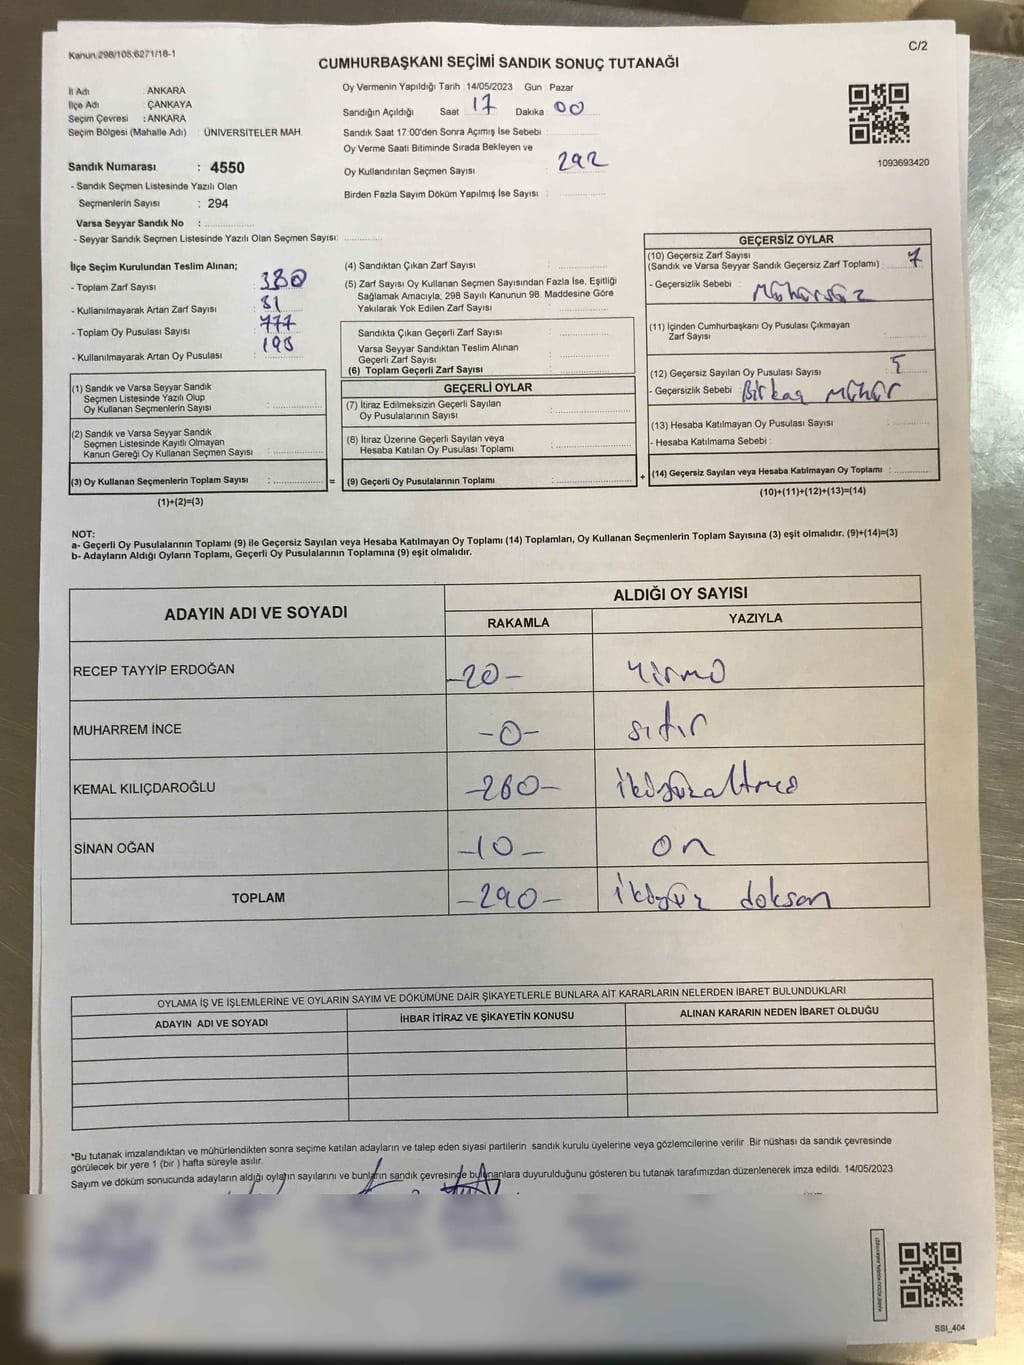 Kanun 298/105;6271/18-1
C/2
CUMHURBAŞKANI SEÇİMİ SANDIK SONUÇ TUTANAĞI
İl Adı : ANKARA
İlçe Adı : ÇANKAYA
Seçim Çevresi : ANKARA
Seçim Bölgesi (Mahalle Adı) : ÜNİVERSİTELER MAH.
Oy Vermenin Yapıldığı Tarih : 14/05/2023 Gun : Pazar
Sandığın Açıldığı Saat 17 Dakika 00
Sandık Saat 17:00'den Sonra Açımış İse Sebebi :
Oy Verme Saati Bitiminde Sırada Bekleyen ve
Oy Kullandırılan Seçmen Sayısı : 292
Birden Fazla Sayım Döküm Yapılmış İse Sayısı :
1093693420
Sandık Numarası : 4550
- Sandık Seçmen Listesinde Yazılı Olan
Seçmenlerin Sayısı : 294
Varsa Seyyar Sandık No :
- Seyyar Sandık Seçmen Listesinde Yazılı Olan Seçmen Sayısı:
İlçe Seçim Kurulundan Teslim Alınan;
- Toplam Zarf Sayısı : 380
- Kullanılmayarak Artan Zarf Sayısı : 81
- Toplam Oy Pusulası Sayısı : 777
- Kullanılmayarak Artan Oy Pusulası :
(1) Sandık ve Varsa Seyyar Sandık
Seçmen Listesinde Yazılı Olup
Oy Kullanan Seçmenlerin Sayısı :
(2) Sandık ve Varsa Seyyar Sandık
Seçmen Listesinde Kayıtlı Olmayan
Kanun Gereği Oy Kullanan Seçmen Sayısı :
(3) Oy Kullanan Seçmenlerin Toplam Sayısı :
(1)+(2)=(3)
=
(4) Sandıktan Çıkan Zarf Sayısı :
(5) Zarf Sayısı Oy Kullanan Seçmen Sayısından Fazla İse, Eşitliği
Sağlamak Amacıyla; 298 Sayılı Kanunun 98. Maddesine Göre
Yakılarak Yok Edilen Zarf Sayısı :
Sandıkta Çıkan Geçerli Zarf Sayısı :
Varsa Seyyar Sandıktan Teslim Alınan
Geçerli Zarf Sayısı :
(6) Toplam Geçerli Zarf Sayısı :
GEÇERLİ OYLAR
(7) İtiraz Edilmeksizin Geçerli Sayılan
Oy Pusulalarının Sayısı :
(8) İtiraz Üzerine Geçerli Sayılan veya
Hesaba Katılan Oy Pusulası Toplamı :
(9) Geçerli Oy Pusulalarının Toplamı :
+
GEÇERSİZ OYLAR
(10) Geçersiz Zarf Sayısı
(Sandık ve Varsa Seyyar Sandık Geçersiz Zarf Toplamı) : 7
- Geçersizlik Sebebi : Mühürsüz
(11) İçinden Cumhurbaşkanı Oy Pusulası Çıkmayan
Zarf Sayısı :
(12) Geçersiz Sayılan Oy Pusulası Sayısı : 5
- Geçersizlik Sebebi : Birkaç Mühür
(13) Hesaba Katılmayan Oy Pusulası Sayısı :
- Hesaba Katılmama Sebebi :
(14) Geçersiz Sayılan veya Hesaba Katılmayan Oy Toplamı :
(10)+(11)+(12)+(13)=(14)
NOT:
a- Geçerli Oy Pusulalarının Toplamı (9) ile Geçersiz Sayılan veya Hesaba Katılmayan Oy Toplamı (14) Toplamları, Oy Kullanan Seçmenlerin Toplam Sayısına (3) eşit olmalıdır. (9)+(14)=(3)
b- Adayların Aldığı Oyların Toplamı, Geçerli Oy Pusulalarının Toplamına (9) eşit olmalıdır.
ADAYIN ADI VE SOYADI
ALDIĞI OY SAYISI
RAKAMLA YAZIYLA
RECEP TAYYİP ERDOĞAN -20- Yirmi
MUHARREM İNCE -0- sıfır
KEMAL KILIÇDAROĞLU -260- ikiyüzaltmış
SİNAN OĞAN -10- on
TOPLAM -290- ikiyüz doksan
OYLAMA İŞ VE İŞLEMLERİNE VE OYLARIN SAYIM VE DÖKÜMÜNE DAİR ŞİKAYETLERLE BUNLARA AİT KARARLARIN NELERDEN İBARET BULUNDUKLARI
ADAYIN ADI VE SOYADI İHBAR İTİRAZ VE ŞİKAYETİN KONUSU ALINAN KARARIN NEDEN İBARET OLDUĞU
*Bu tutanak imzalandıktan ve mühürlendikten sonra seçime katılan adayların ve talep eden siyasi partilerin sandık kurulu üyelerine veya gözlemcilerine verilir. Bir nüshası da sandık çevresinde
görülecek bir yere 1 (bir ) hafta süreyle asılır.
Sayım ve döküm sonucunda adayların aldığı oyların sayılarını ve bunların sandık çevresinde bulunanlara duyurulduğunu gösteren bu tutanak tarafımızdan düzenlenerek imza edildi. 14/05/2023
SSI_404